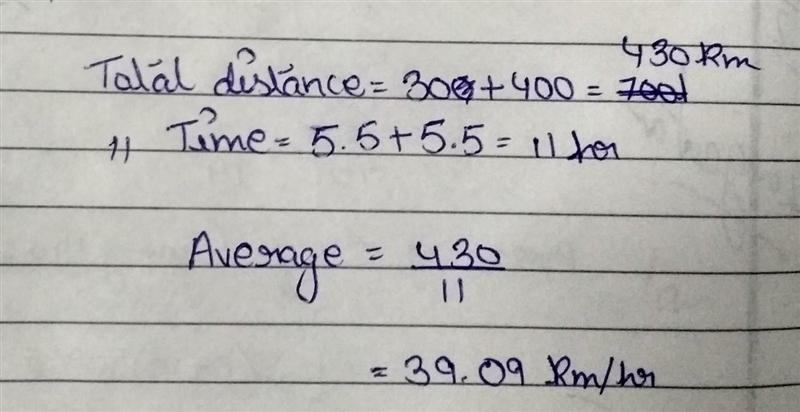 430 Km
Total distance = 30 + 400 =
" Time = 5.5 + 5.5 = 11 hr
Average = 430
11
= 39.09 Km/hr